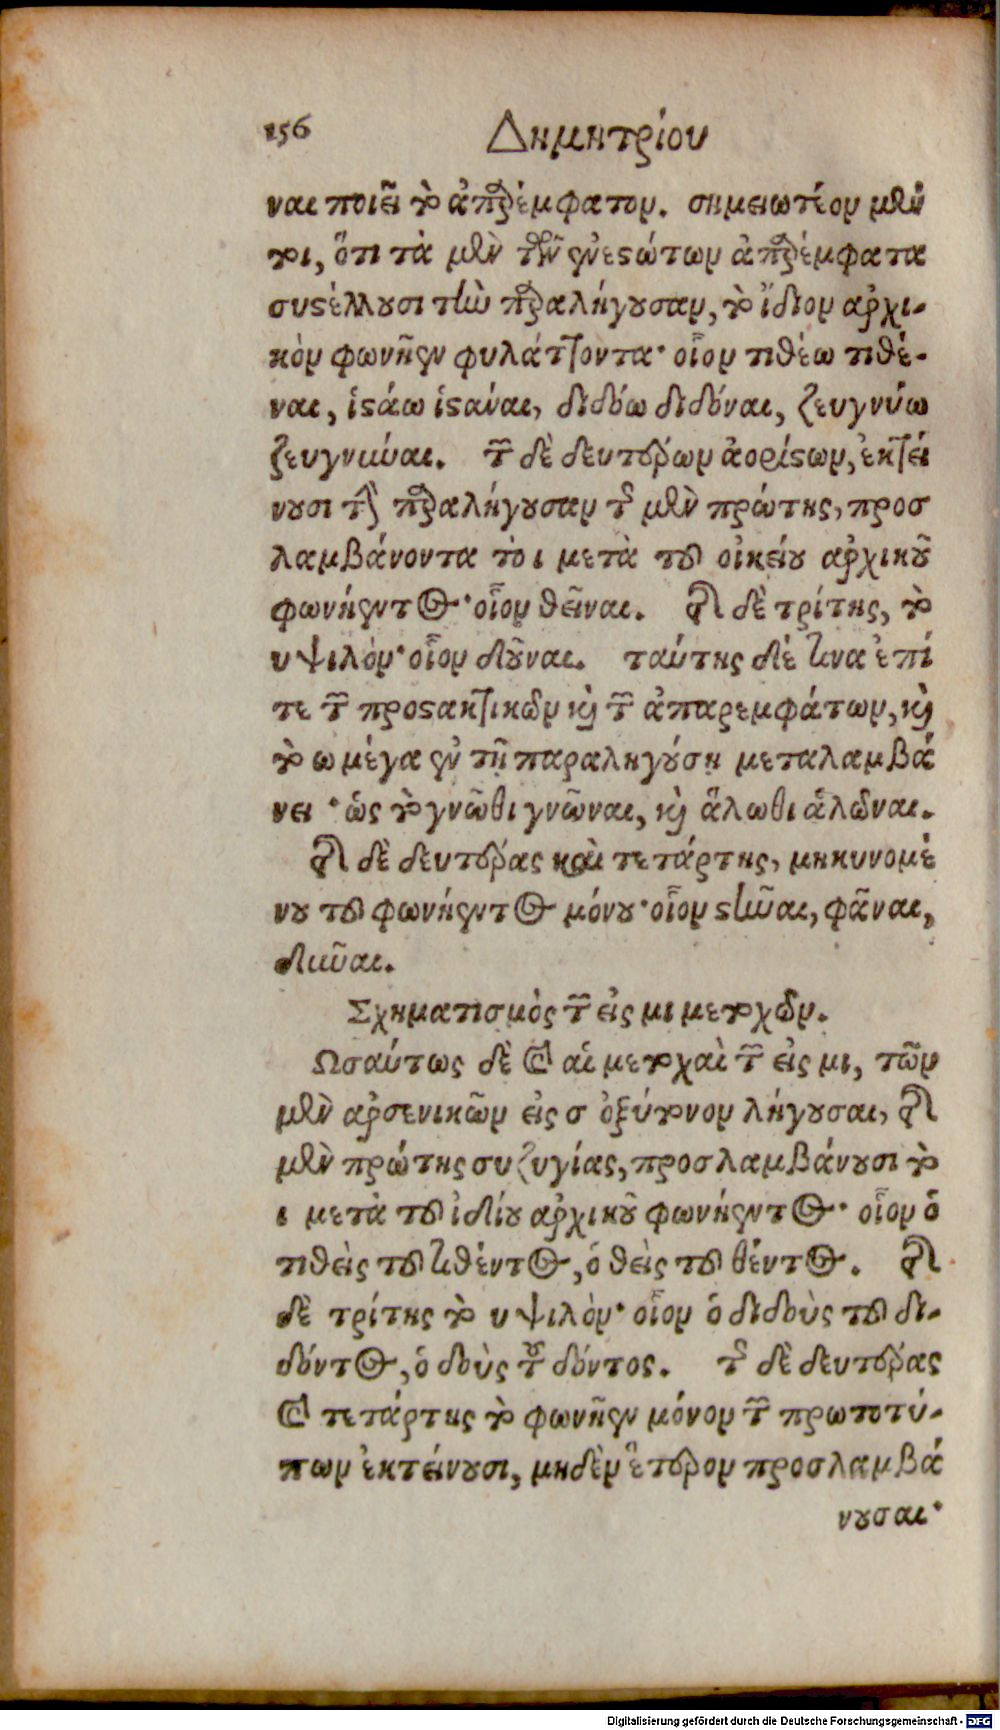 156 Δημητρίου
ναι ποιεῖ τὸ ἀπαρέμφατον. σημειωτέον μέν
τοι, ὅτι τὰ μὲν τῶν ἐνεστώτων ἀπαρέμφατα
συστέλλουσι τὴν παραλήγουσαν, τὸ ἴδιον ἀρχι-
κὸν φωνῆεν φυλάττοντα· οἷον τιθέω τιθέ-
ναι, ἱστάω ἱστάναι, διδόω διδόναι, ζευγνύω
ζευγνύναι. τῶν δὲ δευτέρων ἀορίστων, ἐκτεί
νουσι τὴν παραλήγουσαν τῆς μὲν πρώτης, προσ
λαμβάνοντα τὸ ι μετὰ τοῦ οἰκείου ἀρχικοῦ
φωνήεντος· οἷον θεῖναι. ἀπὸ δὲ τρίτης, τὸ
υ ψιλόν· οἷον δοῦναι. ταύτης δέ τινα ἐπί
τε τῶν προστακτικῶν καὶ τῶν ἀπαρεμφάτων, καὶ
τὸ ω μέγα ἐν τῇ παραληγούσῃ μεταλαμβά
νει· ὡς τὸ γνῶθι γνῶναι, καὶ ἅλωθι ἁλῶναι.
ἀπὸ δὲ δευτέρας καὶ τετάρτης, μηκυνομέ
νου τοῦ φωνήεντος μόνου· οἷον στῆναι, φᾶναι,
δῦναι.
Σχηματισμὸς τῶν εἰς μι μετοχῶν.
Ωσαύτως δὲ καὶ αἱ μετοχαὶ τῶν εἰς μι, τῶν
μὲν ἀρσενικῶν εἰς σ ὀξύτονον λήγουσαι, ἀπὸ
μὲν πρώτης συζυγίας, προσλαμβάνουσι τὸ
ι μετὰ τοῦ ἰδίου ἀρχικοῦ φωνήεντος· οἷον ὁ
τιθεὶς τοῦ τιθέντος, ὁ θεὶς τοῦ θέντος. ἀπὸ
δὲ τρίτης τὸ υ ψιλόν· οἷον ὁ διδοὺς τοῦ δι-
δόντος, ὁ δοὺς τοῦ δόντος. τῆς δὲ δευτέρας
καὶ τετάρτης τὸ φωνῆεν μόνον τῶν πρωτοτύ-
πων ἐκτείνουσι, μηδὲν ἕτερον προσλαμβά
νουσαι·
Digitalisierung gefördert durch die Deutsche Forschungsgemeinschaft - DFG